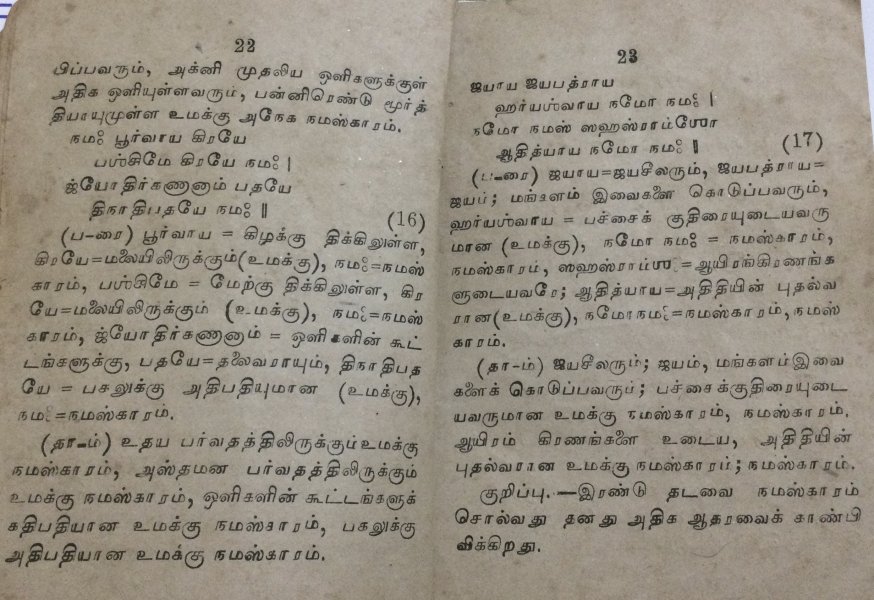 22
பிப்பவரும், அக்னி முதலிய ஒளிகளுக்குள்
அதிக ஒளியுள்ளவரும், பன்னிரெண்டு மூர்த்
தியாயுமுள்ள உமக்கு அநேக நமஸ்காரம்.
நமஃ பூர்வாய கிரயே
பஶ்சிமே கிரயே நமஃ |
ஜ்யோதிர்கணானாம் பதயே
திநாதிபதயே நமஃ || (16)
(ப-ரை) பூர்வாய = கிழக்கு திக்கிலுள்ள,
கிரயே=மலையிலிருக்கும்(உமக்கு), நமஃ=நமஸ்
காரம், பஶ்சிமே = மேற்கு திக்கிலுள்ள, கிர
யே=மலையிலிருக்கும் (உமக்கு), நமஃ=நமஸ்
காரம், ஜ்யோதிர்கணானாம் = ஒளிகளின் கூட்
டங்களுக்கு, பதயே=தலைவராயும், திநாதிபத
யே = பகலுக்கு அதிபதியுமான (உமக்கு),
நமஃ=நமஸ்காரம்.
(தா-ம்) உதய பர்வதத்திலிருக்கும் உமக்கு
நமஸ்காரம், அஸ்தமன பர்வதத்திலிருக்கும்
உமக்கு நமஸ்காரம், ஒளிகளின் கூட்டங்களுக்
கதிபதியான உமக்கு நமஸ்காரம், பகலுக்கு
அதிபதியான உமக்கு நமஸ்காரம்.
23
ஜயாய ஜயபத்ராய
ஹர்யஶ்வாய நமோ நமஃ |
நமோ நமஸ் ஸஹஸ்ராம்ஶோ
ஆதித்யாய நமோ நமஃ || (17)
(ப-ரை) ஜயாய=ஜயசீலரும், ஜயபத்ராய=
ஜயம்; மங்களம் இவைகளை கொடுப்பவரும்,
ஹர்யஶ்வாய = பச்சைக் குதிரையுடையவரு
மான (உமக்கு), நமோ நமஃ = நமஸ்காரம்,
நமஸ்காரம், ஸஹஸ்ராம்ஶோ=ஆயிரங்கிரணங்க
ளுடையவரே; ஆதித்யாய=அதிதியின் புதல்வ
ரான(உமக்கு), நமோநமஃ=நமஸ்காரம், நமஸ்
காரம்.
(தா-ம்) ஜயசீலரும்; ஜயம், மங்களம் இவை
களைக் கொடுப்பவரும்; பச்சைக்குதிரையுடை
யவருமான உமக்கு நமஸ்காரம், நமஸ்காரம்.
ஆயிரம் கிரணங்களை உடைய, அதிதியின்
புதல்வரான உமக்கு நமஸ்காரம்; நமஸ்காரம்.
குறிப்பு.—இரண்டு தடவை நமஸ்காரம்
சொல்வது தனது அதிக ஆதரவைக் காண்பி
விக்கிறது.